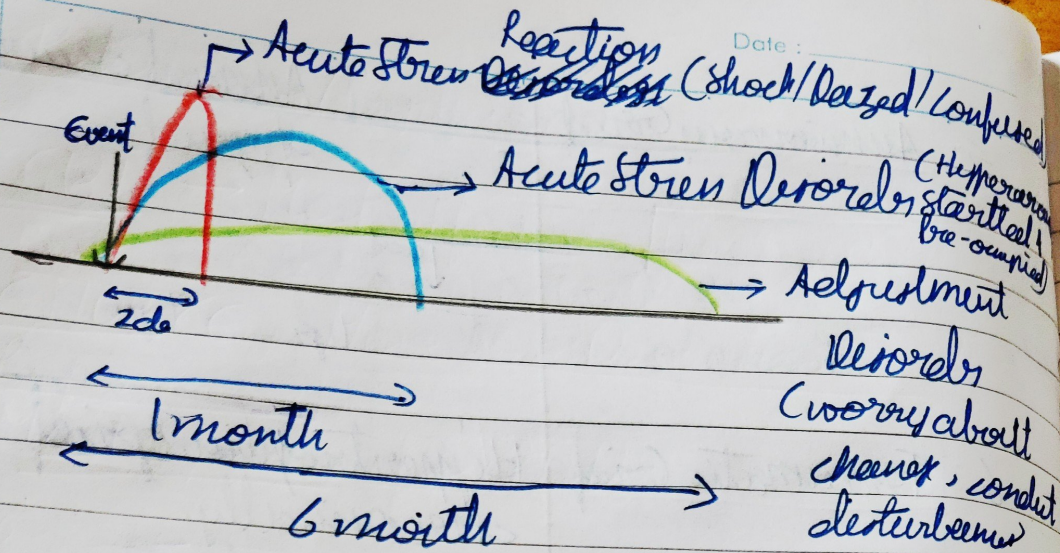 Date :
Acute Stress Reaction (Shock/Dazed/Confused)
Event
Acute Stress Disorder (Hyperarous
Startled &
Pre-occupied)
Adjustment
Disorder
2d
(worry about
1 month
change, conduct
6 month
disturbance)